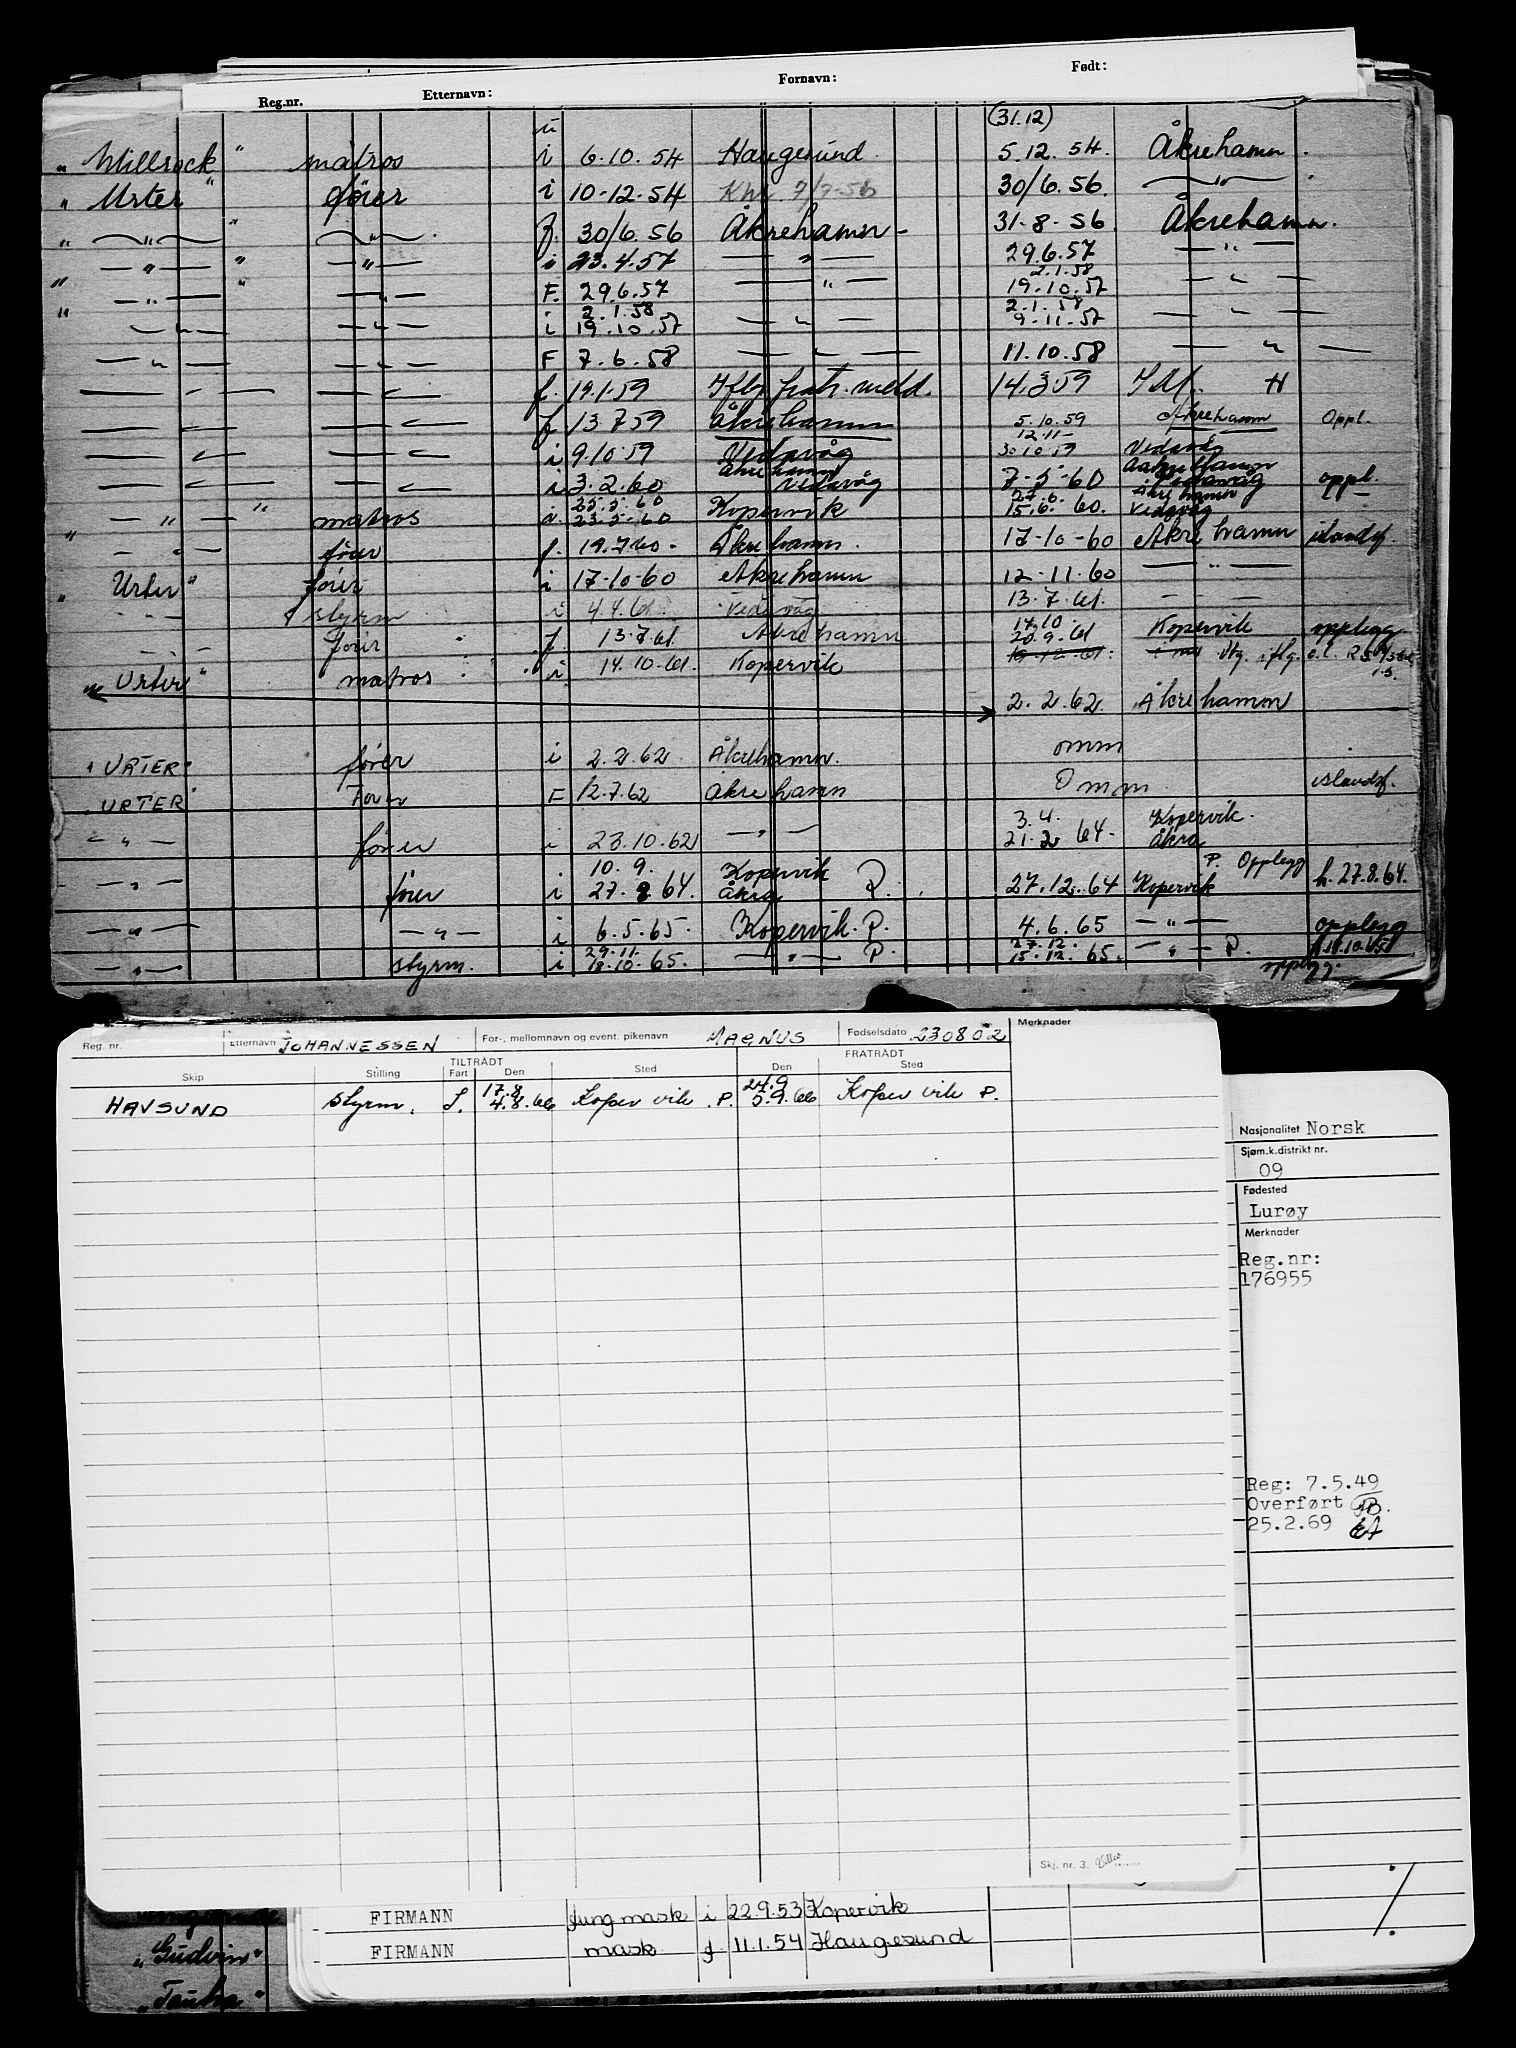 Reg.nr. Etternavn: Fornavn: Født:
(31.12)
" Willrock " matros i 6.10.54 Haugesund. 5.12.54. Åkrehamn.
" Urter " fører i 10-12-54 7/7-56 30/6.56. — " —
" — " — " — " — f. 30/6.56 Åkrehamn - 31-8-56 Åkrehamn.
" — " — " — " — i 23.4.57 — " — 29.6.57 — " —
" — " — " — " — F. 29.6.57 — " — 2.1.58 19.10.57 — " —
" — " — — " — i 2.1.58 19.10.57 — " — 2.1.58 9-11-57 — " —
— " — — " — F 7.6.58 — " — 11.10.58 — " —
— " — — " — f. 19.1.59 Iflg fratr. meld. 14.3.59 H
— " — — " — f 13.7.59 Åkrehamn 5.10.59 Åkrehamn Oppl.
— " — — " — i 9.10.59 Vedavåg 12.11- 30.10.59 Vedavåg
— " — — " — i 3.2.60 Åkrehamn Vedavåg 7-5-60 Vedavåg oppl.
" — " — " matros i. 25.5.60 23.5.60 Kopervik 27.6. 15.6.60. Åkrehamn Vedavåg
- " - fører f. 19.7.60- Åkrehamn. 17-10-60 Åkrehamn islandsf.
" Urter " fører i 17-10-60 Åkrehamn 12-11-60 — " —
- " - styrm i 4.4.61 Vedavåg 13.7.61. — " —
- " - fører f. 13.7.61 Åkrehamn 14.10. 20.9.61 Kopervik opplegg
" Urter " matros i 14.10.61. Kopervik
2.2.62 Åkrehamn
" URTER " fører i 2.2.62 Åkrehamn. omm
" URTER " Fører F 12.7.62 Åkrehamn Omm. islandsf.
- " - fører i 23.10.62 — " — 3.4. 21.2.64. Kopervik. Åkra
- " - fører i 10.9. 27.8.64. Kopervik Åkra P. 27.12.64 Kopervik P. Opplegg h. 27.8.64.
- " - — " — i 6.5.65. Kopervik. P. 4.6.65 — " — opplegg
- " - styrm. i 29.11. 18.10.65. — " — P 27.12. 15.12.65. — " — P. opplegg.
Reg. nr. Etternavn JOHANNESSEN For-, mellomnavn og event. pikenavn MAGNUS Fødselsdato 230802 Merknader
TILTRÅDT FRATRÅDT
Skip Stilling Fart Den Sted Den Sted
HAVSUND styrm. I. 17.8 4.8.66 Kopervik .P. 24.9 5.9.66 Kopervik P.
Nasjonalitet Norsk
Sjøm.k.distrikt nr.
09
Fødested
Lurøy
Merknader
Reg.nr:
176955
Reg: 7.5.49
Overført
25.2.69
Skj. nr. 3.
FIRMANN Jungmask i 22.9.53 Kopervik
FIRMANN mask f. 11.1.54 Haugesund
"Gudvin"